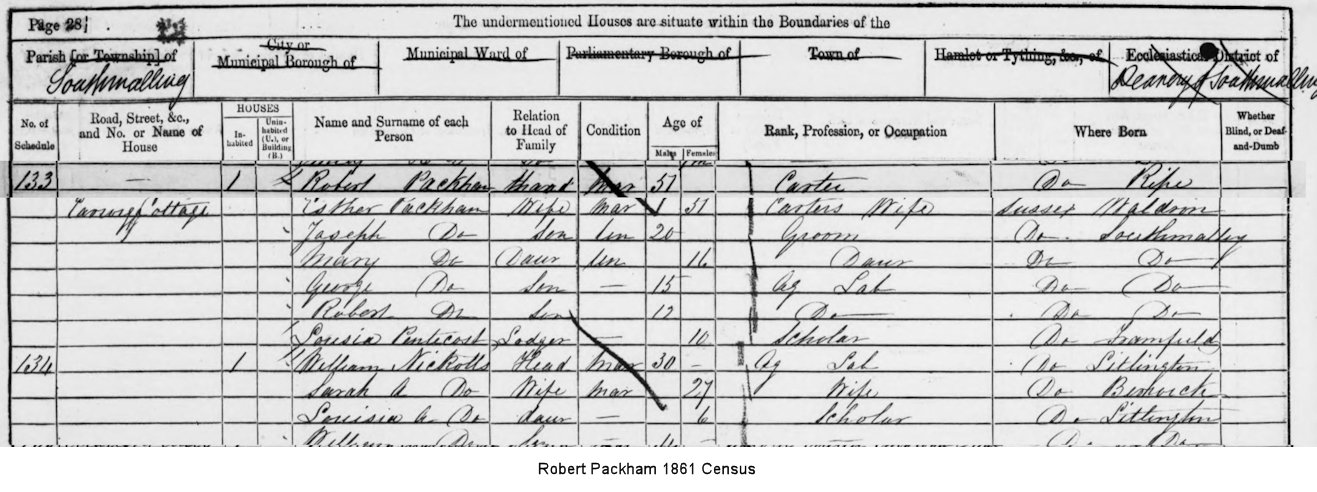 Page 28
The undermentioned Houses are situate within the Boundaries of the
Parish [or Township] of
Southmalling
City or
Municipal Borough of
Municipal Ward of
Parliamentary Borough of
Town of
Hamlet or Tything, &c., of
Ecclesiastical District of
Deanery of Southmalling
No. of Schedule
Road, Street, &c., and No. or Name of House
HOUSES
In-habited
Unin-habited (U.), or Building (B.)
Name and Surname of each Person
Relation to Head of Family
Condition
Age of
Males
Females
Rank, Profession, or Occupation
Where Born
Whether Blind, or Deaf-and-Dumb
133 — 1 Robert Packham Head Mar 51 Carter Do Ripe
Cottage Esther Packham Wife Mar 51 Carters Wife Sussex Waldron
Joseph Do Son Un 20 Groom Do Southmalling
Mary Do Daur Un 16 Daur Do Do
George Do Son — 15 Ag Lab Do Do
Robert Do Son 12 Do Do Do
Louisia Pentecost Lodger — 10 Scholar Do Framfield
134 1 William Nickolls Head Mar 30 - Ag Lab Do Litlington
Sarah A Do Wife Mar 27 Wife Do Berwick
Louisia A Do daur — 6 Scholar Do Litlington
Do
Robert Packham 1861 Census